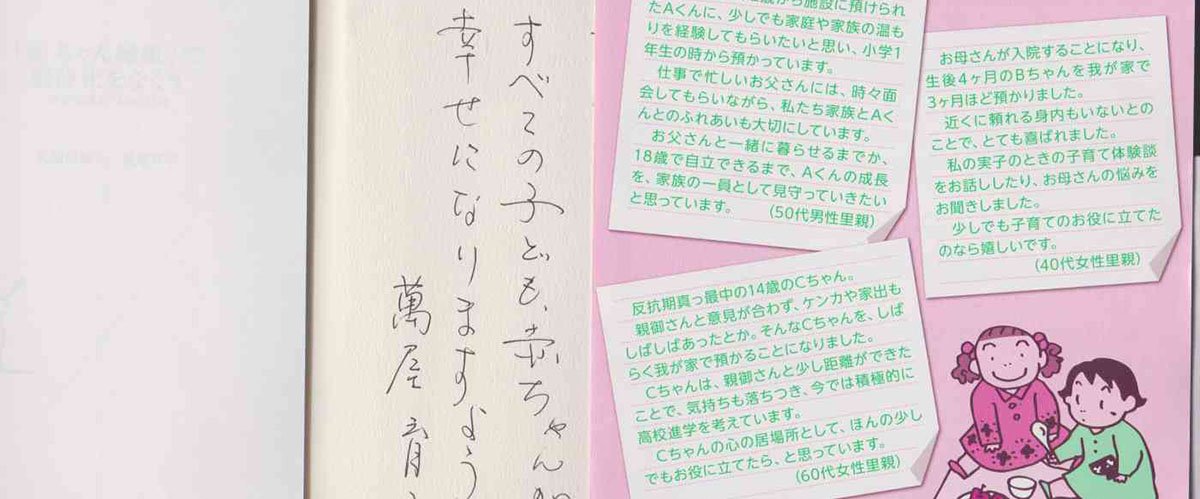 すべての子ども、赤ちゃん
幸せになりますよう
萬屋 育
から施設に預けられ
たAくんに、少しでも家庭や家族の温も
りを経験してもらいたいと思い、小学1
年生の時から預かっています。
仕事で忙しいお父さんには、時々面
会してもらいながら、私たち家族とAく
んとのふれあいも大切にしています。
お父さんと一緒に暮らせるまでか、
18歳で自立できるまで、Aくんの成長
を、家族の一員として見守っていきたい
と思っています。 (50代男性里親)
お母さんが入院することになり、
生後4ヶ月のBちゃんを我が家で
3ヶ月ほど預かりました。
近くに頼れる身内もいないとの
ことで、とても喜ばれました。
私の実子のときの子育て体験談
をお話ししたり、お母さんの悩みを
お聞きしました。
少しでも子育てのお役に立てた
のなら嬉しいです。
(40代女性里親)
反抗期真っ最中の14歳のCちゃん。
親御さんと意見が合わず、ケンカや家出も
しばしばあったとか。そんなCちゃんを、しば
らく我が家で預かることになりました。
Cちゃんは、親御さんと少し距離ができた
ことで、気持ちも落ちつき、今では積極的に
高校進学を考えています。
Cちゃんの心の居場所として、ほんの少し
でもお役に立てたら、と思っています。
(60代女性里親)